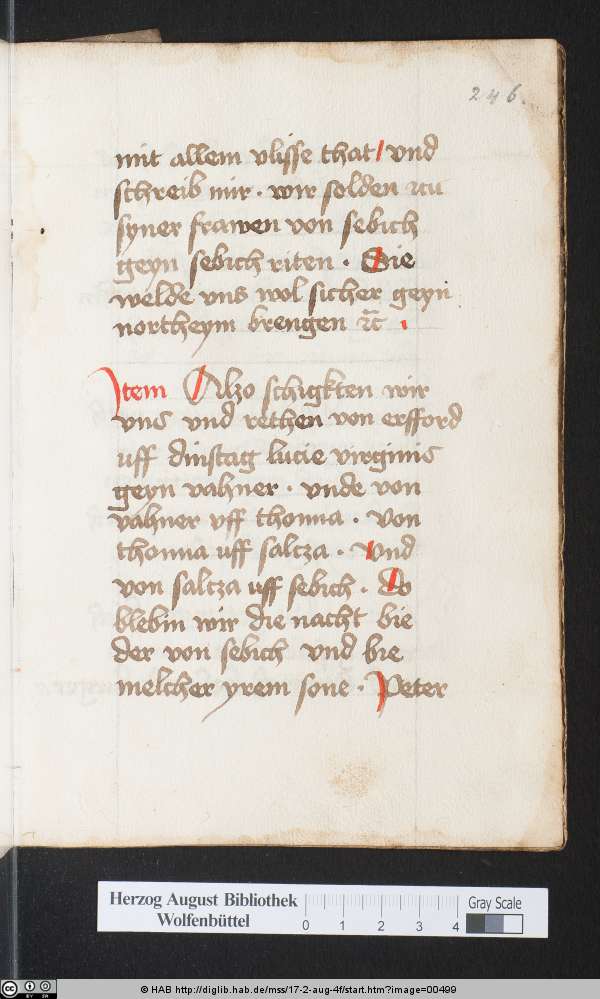 246.
mit allem vlisse that / vnd
schreib mir · wir solden zcu
syner frawen von sebich
geyn sebich riten · Sie
welde vns wol sicher geyn
northeym brengen ꝛc̄ .
Item Alzo schigkten wir
vns vnd rethen von erfford
uff dinstag lucie virginis
geyn vahner · vnde von
vahner vff thonna · Von
thonna uff salcza · Vnd
von salcza uff sebich · Do
blebin wir die nacht bie
der von sebich vnd bie
melcher yrem sone · Peter
Herzog August Bibliothek
Wolfenbüttel
0 1 2 3 4
Gray Scale
© HAB http://diglib.hab.de/mss/17-2-aug-4f/start.htm?image=00499